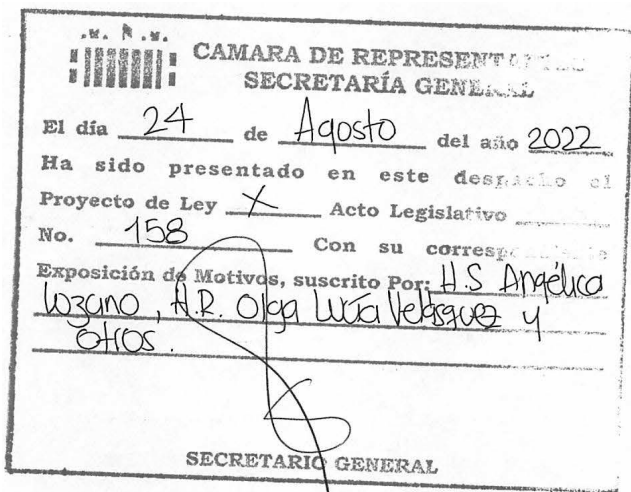 CAMARA DE REPRESENTANTES
SECRETARÍA GENERAL
El día 24 de Agosto del año 2022
Ha sido presentado en este despacho el
Proyecto de Ley X Acto Legislativo
No. 158 Con su correspondiente
Exposición de Motivos, suscrito Por: H.S Angélica
Lozano, H.R. Olga Lucía Velásquez y
otros.
SECRETARIO GENERAL